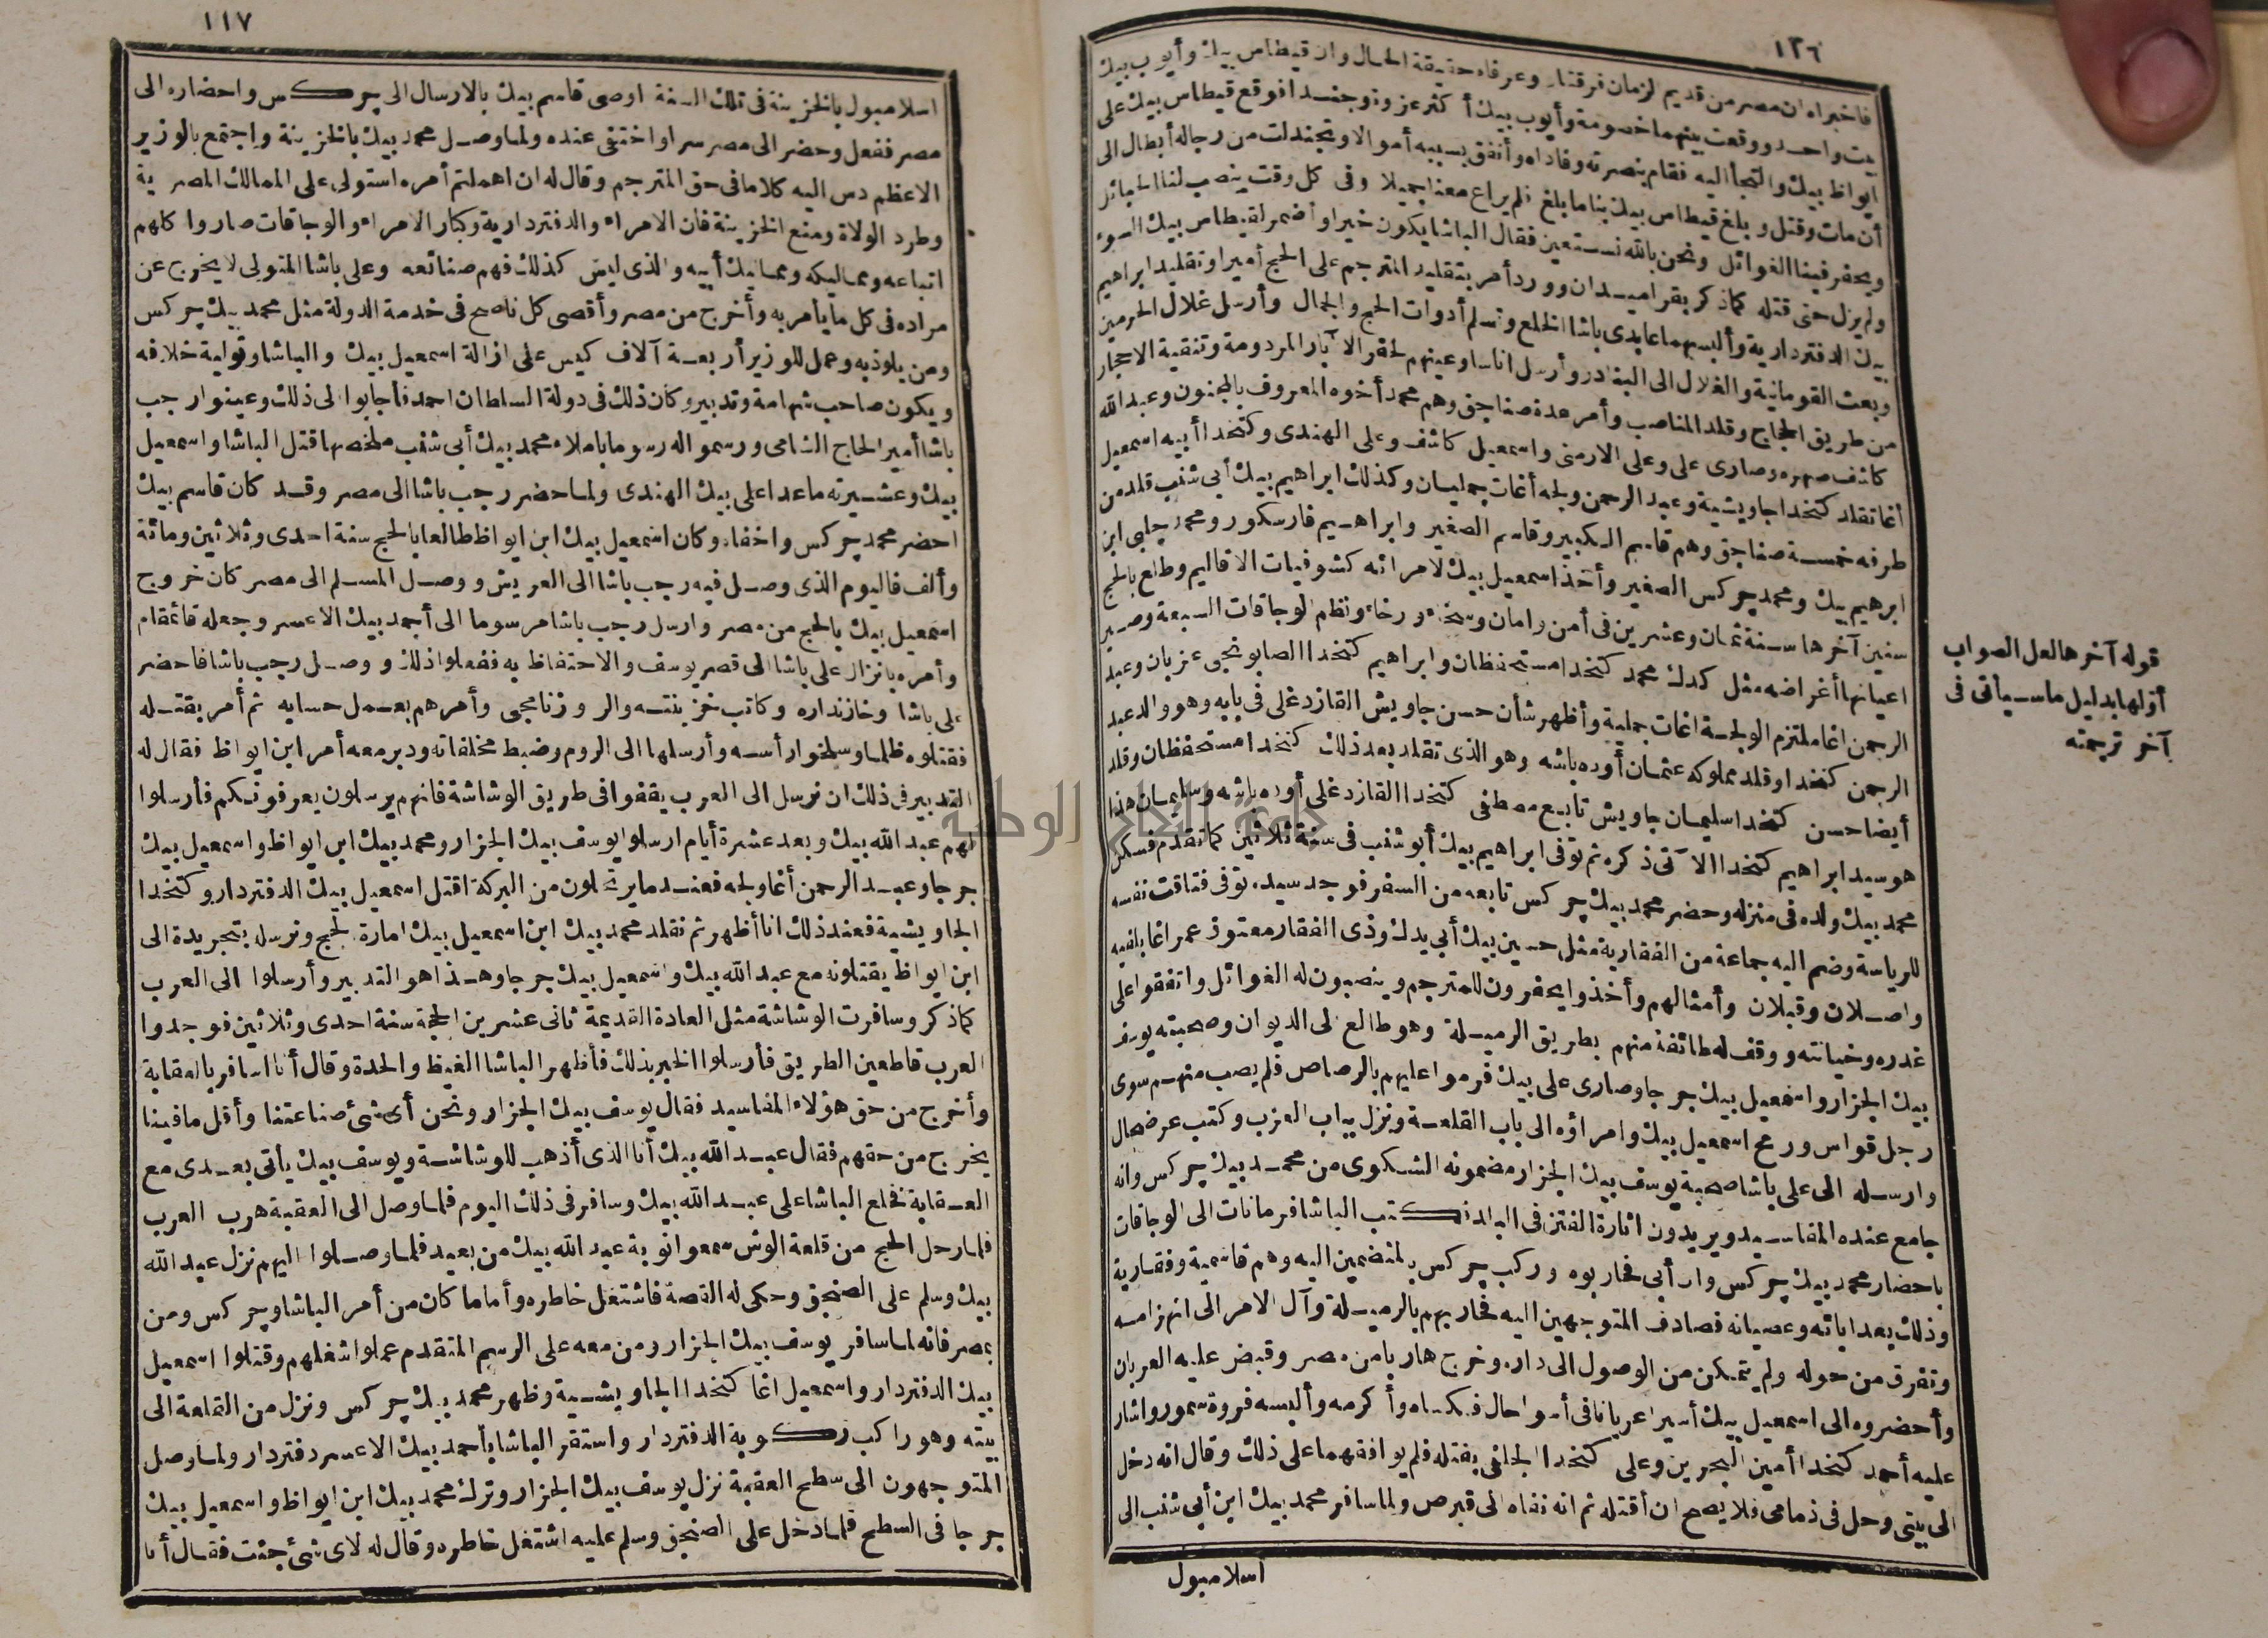 ١٢٦
فاخبراه ان مصر من قديم الزمان فرقتان وعرفاه حقيقة الحال وان قيطاس بيك وأيوب بيك
بيت واحد ووقعت بينهما خصومة وأيوب بيك أكثر عزوة وجندا فوقع قيطاس بيك على
ايواظ بيك والتجأ اليه فقام بنصرته وفاداه وأنفق بسببه أموالا وتجندلت من رجاله أبطال الى
أن مات وقتل وبلغ قيطاس بيك بنا ما بلغ فلم يراع معنا جميلا وفى كل وقت ينصب لنا الحبائل
ويحفر فينا الغوائل ونحن بالله نستعين فقال الباشا يكون خيرا وأضمر لقيطاس بيك السوء
ولم يزل حتى قتله كما ذكر بقراميدان وورد أمر بتقليد المترجم على الحج أميرا وتقليد ابراهيم
بيك الدفتردارية وألبسهما عابدى باشا الخلع وتسلم أدوات الحج والجمال وأرسل غلال الحرمين
وبعث القومانية والغلال الى البنادر وأرسل اناسا وعينهم لحفر الآبار المردومة وتنقية الاحجار
من طريق الحجاج وقلد المناصب وأمر عدة صناجق وهم محمد أخوه المعروف بالمجنون وعبد الله
كاشف صهره وصارى على وعلى الارمنى واسمعيل كاشف وعلى الهندى وكتخدا أبيه اسمعيل
أغا تقلد كتخدا جاويشية وعبد الرحمن ولجه أغات جمليان وكذلك ابراهيم بيك أبى شنب قلد من
طرفه خمسة صناجق وهم قاسم الكبير وقاسم الصغير وابراهيم فارسكور ومحمد جلبى ابن
ابرهيم بيك ومحمد چركس الصغير وأخذ اسمعيل بيك لامرائه كشوفيات الاقاليم وطلع بالحج
سنين آخرها سنة ثمان وعشرين فى أمن وامان وسخاء ورخاء ونظم الوجاقات السبعة وصير
اعيانها أغراضه مثل كدك محمد كتخدا مستحفظان وابراهيم كتخدا الصابونجى عزبان وعبد
الرحمن اغا ملتزم الولجة اغات جملية وأظهر شأن حسن جاويش القازدغلى فى بابه وهو والد عبد
الرجمن كتخدا وقلد مملوكه عثمان أوده باشه وهو الذى تقلد بعد ذلك كتخدا مستحفظان وقلد
أيضا حسن كتخدا سليمان جاويش تابع مصطفى كتخدا القازدغلى أوده باشه وسليمان هذا
هو سيد ابراهيم كتخدا الآتى ذكره ثم توفى ابراهيم بيك أبو شنب فى سنة ثلاثين كما تقدم فسكن
محمد بيك ولده فى منزله وحضر محمد بيك چركس تابعه من السفر فوجد سيده توفى فتاقت نفسه
للرياسة وضم اليه جماعة من الفقارية مثل حسين بيك أبى يدك وذى الفقار معتوق عمر اغا بلفيه
واصلان وقبلان وأمثالهم وأخذوا يحفرون للمترجم وينصبون له الغوائل واتفقوا على
غدره وخيانته ووقف له طائفة منهم بطريق الرميلة وهو طالع الى الديوان وصحبته يوسف
بيك الجزار واسمعيل بيك جرجا وصارى على بيك فرموا عليهم بالرصاص فلم يصب منهم سوى
رجل قواس ورمح اسمعيل بيك وامراؤه الى باب القلعة ونزل بباب العزب وكتب عرضحال
وارسله الى على باشا صحبة يوسف بيك الجزار مضمونه الشكوى من محمد بيك چركس وانه
جامع عنده المفاسيد ويريدون اثارة الفتن فى البلد فكتب الباشا فرمانات الى الوجاقات
باحضار محمد بيك چركس وان أبى فحاربوه وركب چركس بالمنضمين اليه وهم قاسمية وفقارية
وذلك بعد ابائه وعصيانه فصادف المتوجهين اليه فحاربهم بالرميلة وآل الامر الى انهزامه
وتفرق من حوله ولم يتمكن من الوصول الى داره وخرج هاربا من مصر وقبض عليه العربان
وأحضروه الى اسمعيل بيك أسيرا عريانا فى أسوا حال فكساه وأكرمه وألبسه فروة سمور واشار
عليه أحمد كتخدا أمين البحرين وعلى كتخدا الجلفى بقتله فلم يوافقهما على ذلك وقال انه دخل
الى بيتى وحل فى ذمامى فلا يصح ان أقتله ثم انه نفاه الى قبرص ولما سافر محمد بيك ابن أبى شنب الى
اسلامبول
قوله آخرها لعل الصواب
أولها بدليل ما سيأتى فى
آخر ترجمته
١١٧
اسلامبول بالخزينة فى تلك السنة اوصى قاسم بيك بالارسال الى چركس واحضاره الى
مصر ففعل وحضر الى مصر سرا واختفى عنده ولما وصل محمد بيك بالخزينة واجتمع بالوزير
الاعظم دس اليه كلاما فى حق المترجم وقال له ان اهملتم أمره استولى على الممالك المصرية
وطرد الولاة ومنع الخزينة فان الامراء والدفتردارية وكبار الامراء والوجاقات صاروا كلهم
اتباعه ومماليكه ومماليك أبيه والذى ليس كذلك فهم صنائعه وعلى باشا المتولى لا يخرج عن
مراده فى كل ما يأمر به وأخرج من مصر وأقصى كل ناصح فى خدمة الدولة مثل محمد بيك چركس
ومن يلوذ به وعمل للوزير أربعة آلاف كيس على ازالة اسمعيل بيك والباشا وتولية خلافه
ويكون صاحب شهامة وتدبير وكان ذلك فى دولة السلطان احمد فأجابوا الى ذلك وعينوا رجب
باشا أمير الحاج الشامى ورسموا له رسوما باملاء محمد بيك أبى شنب ملخصها قتل الباشا واسمعيل
بيك وعشيرته ما عدا على بيك الهندى ولما حضر رجب باشا الى مصر وقد كان قاسم بيك
احضر محمد چركس واخفاه وكان اسمعيل بيك ابن ايواظ طالعا بالحج سنة احدى وثلاثين ومائة
وألف فاليوم الذى وصل فيه رجب باشا الى العريش ووصل المسلم الى مصر كان خروج
اسمعيل بيك بالحج من مصر وارسل رجب باشا مرسوما الى أحمد بيك الاعسر وجعله قائمقام
وأمره بانزال على باشا الى قصر يوسف والاحتفاظ به ففعلوا ذلك ووصل رجب باشا فاحضر
على باشا وخازنداره وكاتب خزينته والروزنامجى وأمرهم بعمل حسابه ثم أمر بقتله
فقتلوه ظلما وسلخوا رأسه وأرسلها الى الروم وضبط مخلفاته ودبر معه أمر ابن ايواظ فقال له
التدبير فى ذلك ان نرسل الى العرب يقفوا فى طريق الوشاشة فانهم يرسلون يعرفونكم فأرسلوا
لهم عبد الله بيك وبعد عشرة أيام ارسلوا يوسف بيك الجزار ومحمد بيك ابن ايواظ واسمعيل بيك
جرجا وعبد الرحمن أغا ولجه فعند ما يرتحلون من البركة اقتل اسمعيل بيك الدفتردار وكتخدا
الجاويشية فعند ذلك انا أظهر ثم نقلد محمد بيك ابن اسمعيل بيك امارة الحج ونرسله بتجريدة الى
ابن ايواظ يقتلونه مع عبد الله بيك واسمعيل بيك جرجا وهذا هو التدبير وأرسلوا الى العرب
كما ذكر وسافرت الوشاشة مثل العادة القديمة ثانى عشرين الحجة سنة احدى وثلاثين فوجدوا
العرب قاطعين الطريق فأرسلوا الخبر بذلك فأظهر الباشا الغيظ والحدة وقال أنا اسافر بالعقابة
وأخرج من حق هؤلاء المفاسيد فقال يوسف بيك الجزار ونحن أى شئ صناعتنا وأقل ما فينا
يخرج من حقهم فقال عبد الله بيك أنا الذى أذهب للوشاشة ويوسف بيك يأتى بعدى مع
العقابة فخلع الباشا على عبد الله بيك وسافر فى ذلك اليوم فلما وصل الى العقبة هرب العرب
فلما رحل الحج من قلعة الوش سمعوا نوبة عبد الله بيك من بعيد فلما وصلوا اليهم نزل عبد الله
بيك وسلم على الصنجق وحكى له القصة فاشتغل خاطره وأما ما كان من أمر الباشا وچركس ومن
بمصر فانه لما سافر يوسف بيك الجزار ومن معه على الرسم المتقدم عملوا شغلهم وقتلوا اسمعيل
بيك الدفتردار واسمعيل اغا كتخدا الجاويشية وظهر محمد بيك چركس ونزل من القلعة الى
بيته وهو راكب ركوبة الدفتردار واستقر الباشا بأحمد بيك الاعسر دفتردار ولما وصل
المتوجهون الى سطح العقبة نزل يوسف بيك الجزار وترك محمد بيك ابن ايواظ واسمعيل بيك
جرجا فى السطح فلما دخل على الصنجق وسلم عليه اشتغل خاطره وقال له لاى شئ جئت فقال أنا
جامعة النجاح الوطنية